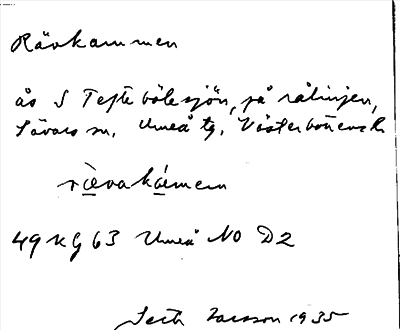 Rävkammen
ås S Teftebölesjön, på rålinjen,
Sävars sn, Umeå tg, Västerbottens l.
rävakámen
49 KG 63 Umeå NO D2
Seth Larsson 1935